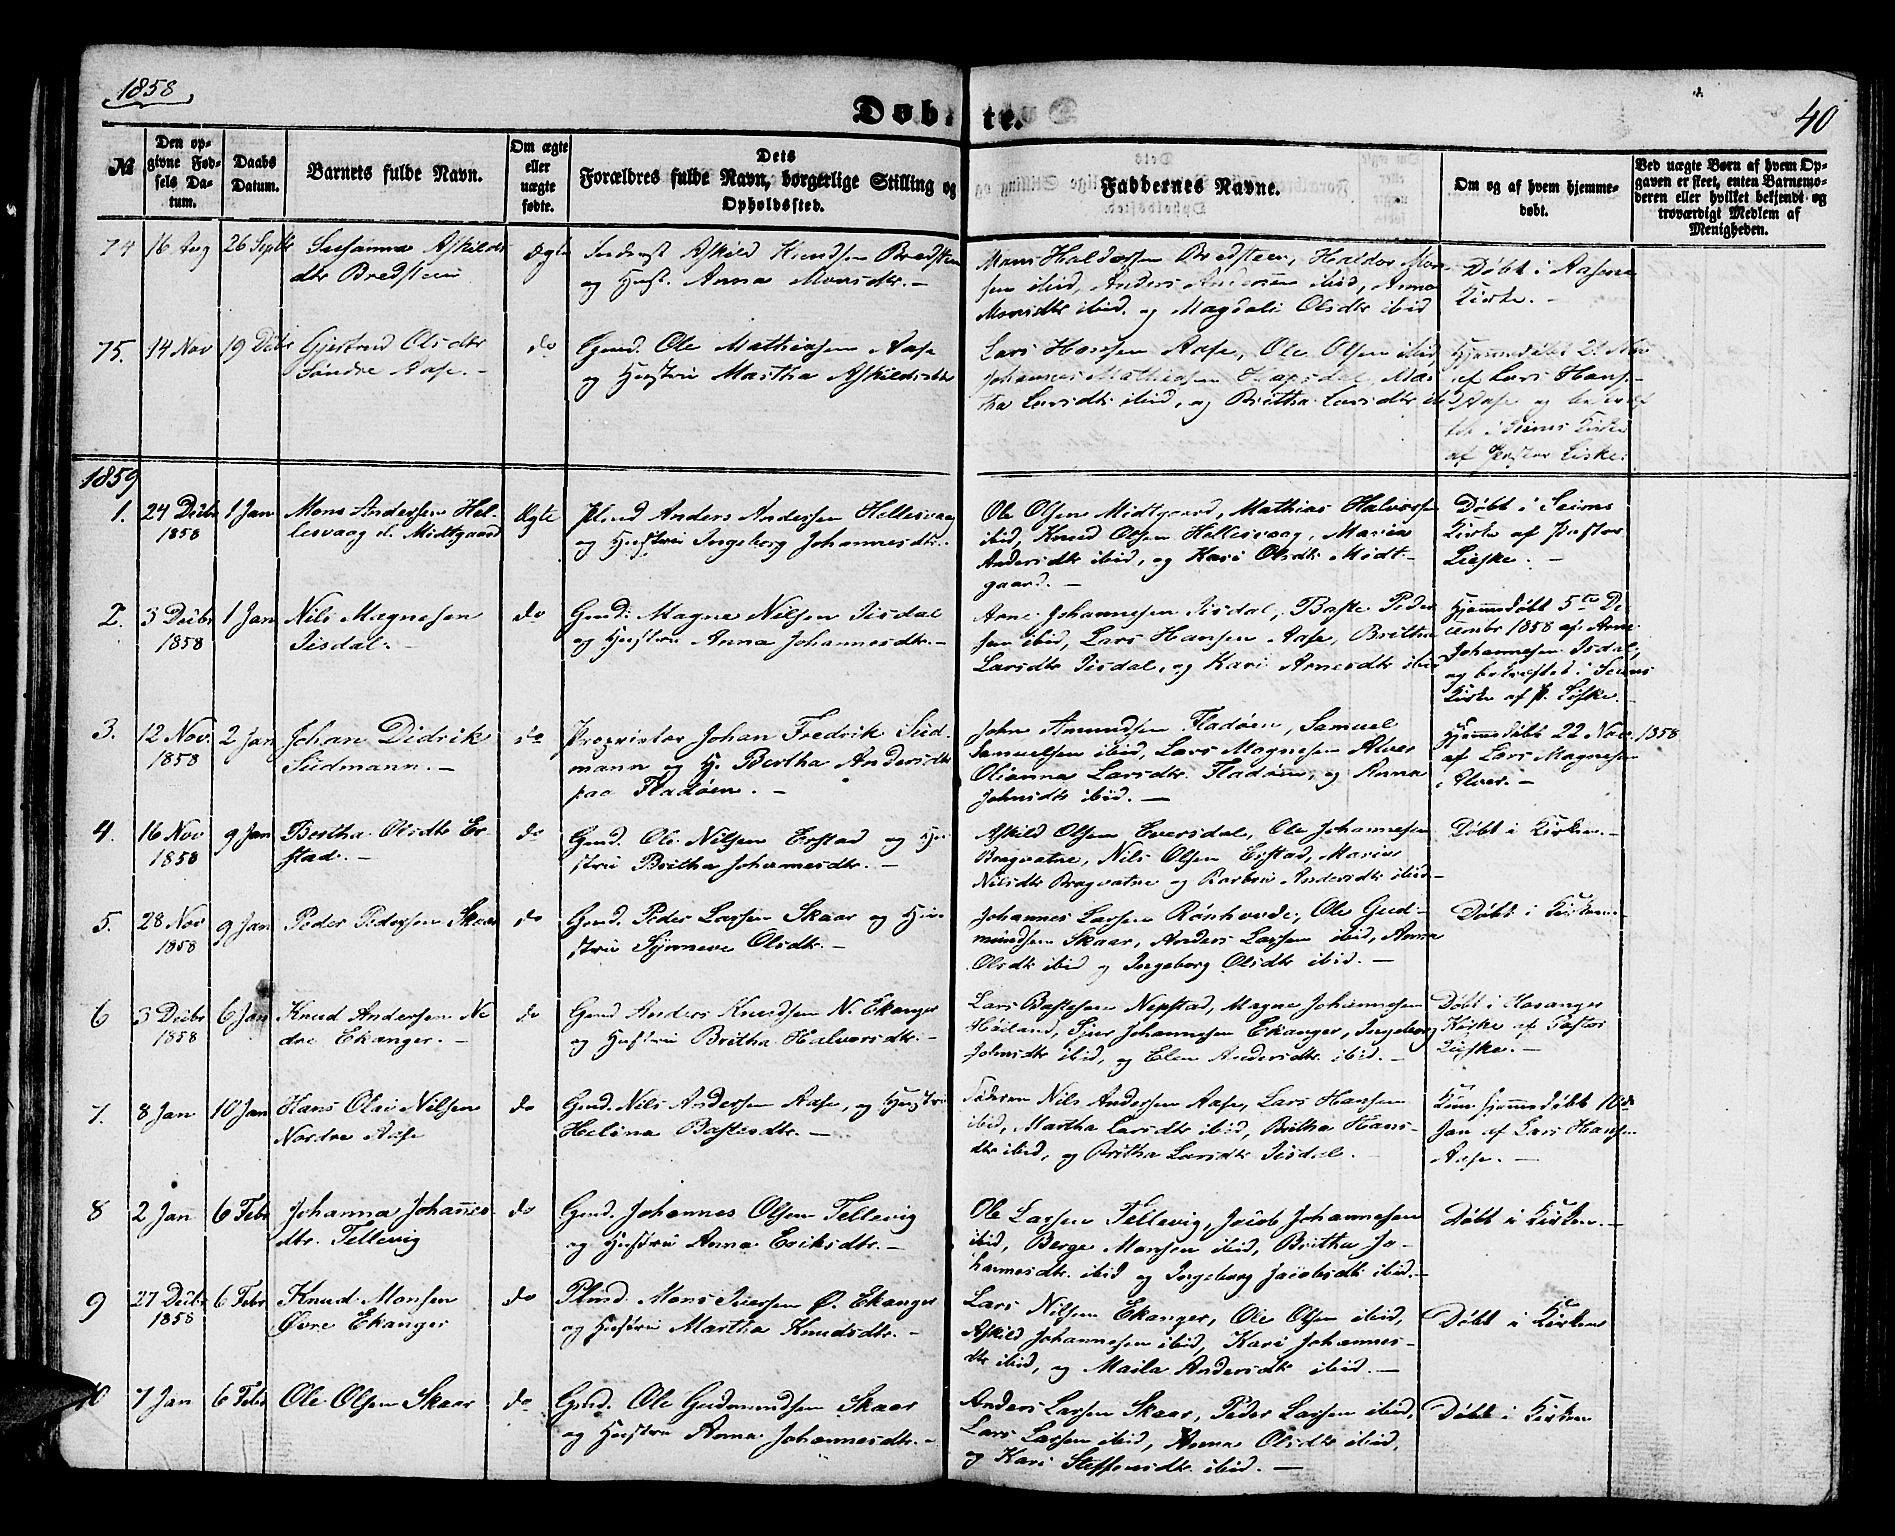 1858
Døbte.
40
№
Den opgivne Fødsels Datum.
Daabs Datum.
Barnets fulde Navn.
Om ægte eller uægte fødte.
Dets Forældres fulde Navn, borgerlige Stilling og Opholdssted.
Faddernes Navne.
Om og af hvem hjemmedøbt.
Ved uægte Børn af hvem Opgaven er skeet, enten Barnemoderen eller hvilket bekjendt og troværdigt Medlem af Menigheden.
74 16 Aug 26 Septbr Susanna Askilds
dtr Bredsteen
Ægte
Askild Knudsen Bredsteen
og Hust. Anna Monsdtr. -
Mons Haldorsen Bredsteen, Haldor Mon-
sen ibid, Anders Andersen ibid, Anna
Monsdtr ibid. og Magdali Olsdtr ibid
Døbt i Aasene
Kirke. -
75. 14 Nov 19 Debr Gjertrud Olsdtr
Søndre Aase. -
do
Gmd. Ole Mathiasen Aase
og Hustru Martha Askildsdtr
Lars Hansen Aase, Ole Olsen ibid,
Johannes Mathiesen
tha Larsdtr ibid, og Britha Larsdtr ibid
Hjemmedøbt 21 Nov
af Lars Hans-
Aase og bekræf-
tet i Seims Kirke
af Pastor Lieske.
1859
1. 24 Debr 1858 1 Jan Mons Andersen Hel-
lesvaag d. Midtgaard
Ægte
Plmd Anders Andersen Hellesvaag
og Hustru Ingeborg Johannesdtr. -
Ole Olsen Midtgaard, Mathias Halvors
ibid, Knud Olsen Hellesvaag, Maria
Andersdtr ibid, og Kari Olsdtr Midt-
gaard. -
Døbt i Seims
Kirke af Pastor
Lieske. -
2. 3 Debr 1858 1 Jan Nils Magnesen
Iisdal. -
do
Gmd: Magne Nilsen Iisdal
og Hustru Anna Johannesdtr. -
Arne Johannesen Iisdal, Baste Peder
sen ibid, Lars Hansen Aase, Britha
Larsdtr Iisdal, og Kari Arnesdtr ibid
Hjemmedøbt 5te De-
cembr 1858 af Arne
Johannesen Isdal,
og bekræftet i Seims
Kirke af P. Lieske. -
3. 12 Nov. 1858 2 Jan Johan Didrik
Südmann. -
do
Proprietær Johan Fredrik Süd-
mann og H. Bertha Andersdtr
paa Fladøen. -
John Amundsen Fladøen, Samuel
Samuelsen ibid, Lars Magnesen Alver
Olianna Larsdtr. Fladøen, og Anna
Johnsdtr ibid. -
Hjemmedøbt 22 Novr. 1858
af Lars Magnesen
Alver. -
4. 16 Nov 1858 9 Jan Bertha Olsdtr Er-
stad. -
do
Gmd. Ole Nilsen Erstad og Hu-
stru Britha Johannesdtr. -
Askild Olsen Eversdal, Ole Johannesen
Bragvatne, Nils Olsen Erstad, Maria
Nilsdtr Bragvatne og Barbro Andersdtr ibid -
Døbt i Kirken. -
5. 28 Nov 1858 9 Jan Peder Pedersen Skaar
do
Gmd. Peder Larsen Skaar og Hu-
stru Synneve Olsdtr. -
Johannes Larsen Rønhovde, Ole Gud-
mundsen Skaar, Anders Larsen ibid, Anna
Olsdtr ibid og Ingeborg Olsdtr ibid. -
Døbt i Kirken. -
6 3 Debr 1858 6 Jan Knud Andersen Ne
dre Ekanger. -
do
Gmd Anders Knudsen N. Ekanger
og Hustru Britha Halvorsdtr. -
Lars Bastesen Nepstad, Magne Johannesen
Høiland, Sjur Johannesen Ekanger, Ingeborg
Johnsdtr ibid, og Elen Andersdtr ibid. -
Døbt i Hosanger
Kirke af Pastor
Lieske. -
7. 8 Jan 10 Jan Hans Olai Nilsen
Nordre Aase
do
Gmd. Nils Andersen Aase, og Hustru
Helena Bastesdtr. -
Faderen Nils Andersen Aase, Lars Hansen
ibid, Martha Larsdtr ibid, Britha Hans-
dtr ibid, og Britha Larsdtr Iisdal. -
Kun hjemmedøbt 10de
Jan af Lars Hansen
Aase. -
8 2 Jan 6 Febr Johanna Johannes-
dtr. Tellevig
do
Gmd. Johannes Olsen Tellevig
og Hustru Anna Eriksdtr. -
Ole Larsen Tellevig, Jacob Johannesen
ibid, Berge Monsen ibid, Britha Jo-
hannesdtr. ibid og Ingeborg Jacobsdtr ibid. -
Døbt i Kirken. -
9 27 Debr 1858 6 Febr Knud Monsen
Øvre Ekanger
do
Plmd. Mons Iversen Ø. Ekanger
og Hustru Martha Knudsdtr. -
Lars Nilsen Ekanger, Ole Olsen ibid,
Askild Johannesen ibid, Kari Johannes-
dtr ibid, og Maila Andersdtr ibid. -
Døbt i Kirken
10 7 Jan 6 Febr Ole Olsen Skaar
do
Gmd. Ole Gudmundsen Skaar
og Hustru Anna Johannesdtr. -
Anders Larsen Skaar, Peder Larsen ibid,
Lars Larsen ibid, Anna Olsdtr ibid,
og Kari Steffensdtr ibid. -
Døbt i Kirken